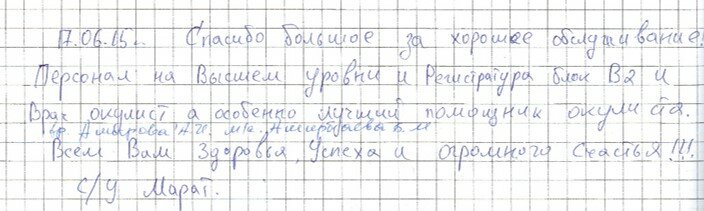 17.06.15г. Спасибо большое за хорошее обслуживание!
Персонал на Высшем уровни и Регистратура блок В2 и
Врач окулист а особенно лучший помощник окулиста.
вр. Амырова А.И. м/с.
Всем Вам Здоровья, Успеха и огромного Счастья!!!
С/У Марат.